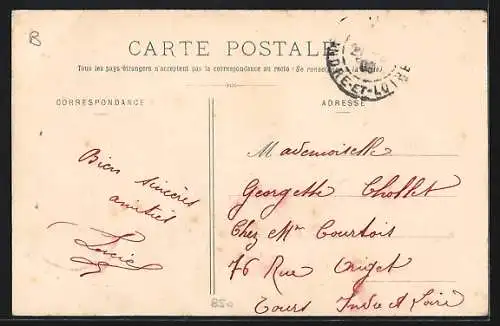 B
CARTE POSTALE
Tous les pays étrangers n'acceptent pas la correspondance au recto (Se à la
INDRE-ET-LOIRE
CORRESPONDANCE
ADRESSE
Bien sincères
amitiés
Mademoiselle
Georgette Chollet
Chez Mme Courtois
76 Rue Origet
Tours Indre et Loire
850